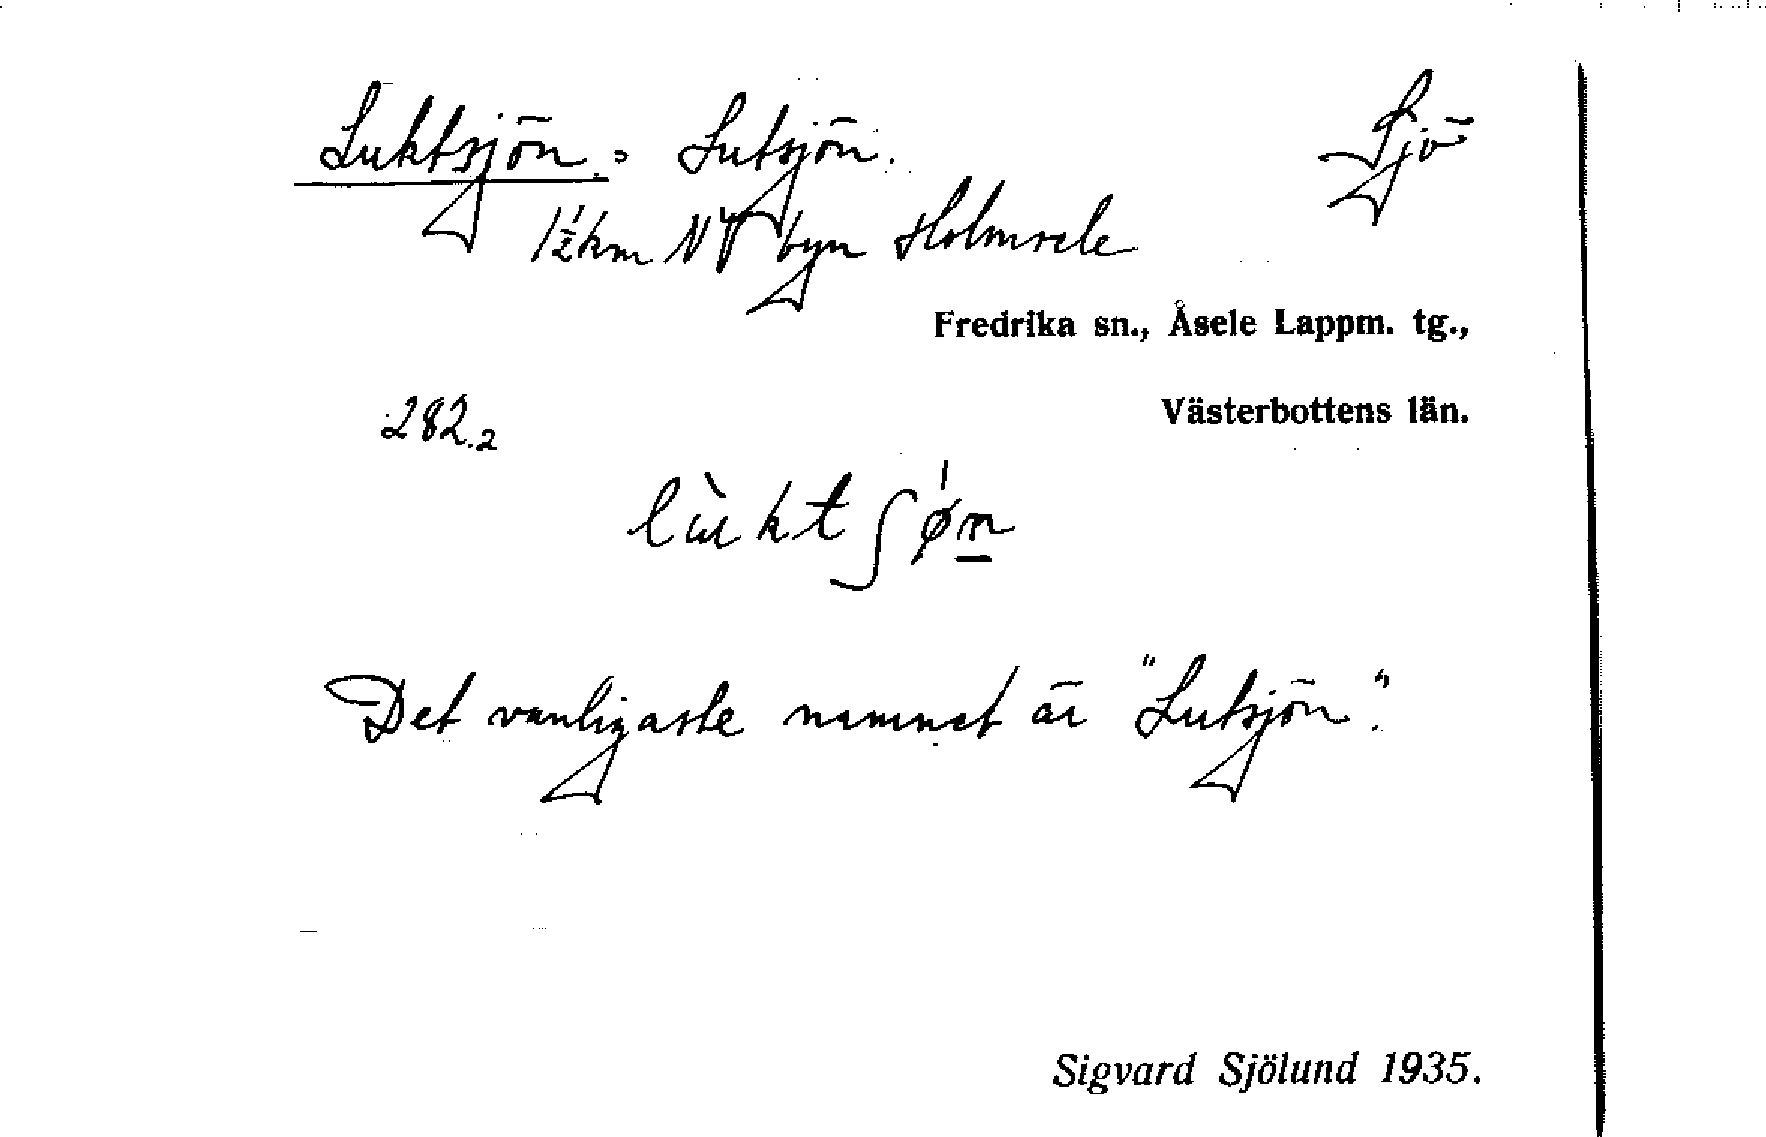 Luktsjön. = Lutsjön. Sjö
1½ km NV byn Holmsele
Fredrika sn., Åsele Lappm. tg.,
282.2 Västerbottens län.
lùktʃø̍n
Det vanligaste namnet är "Lutsjön".
Sigvard Sjölund 1935.